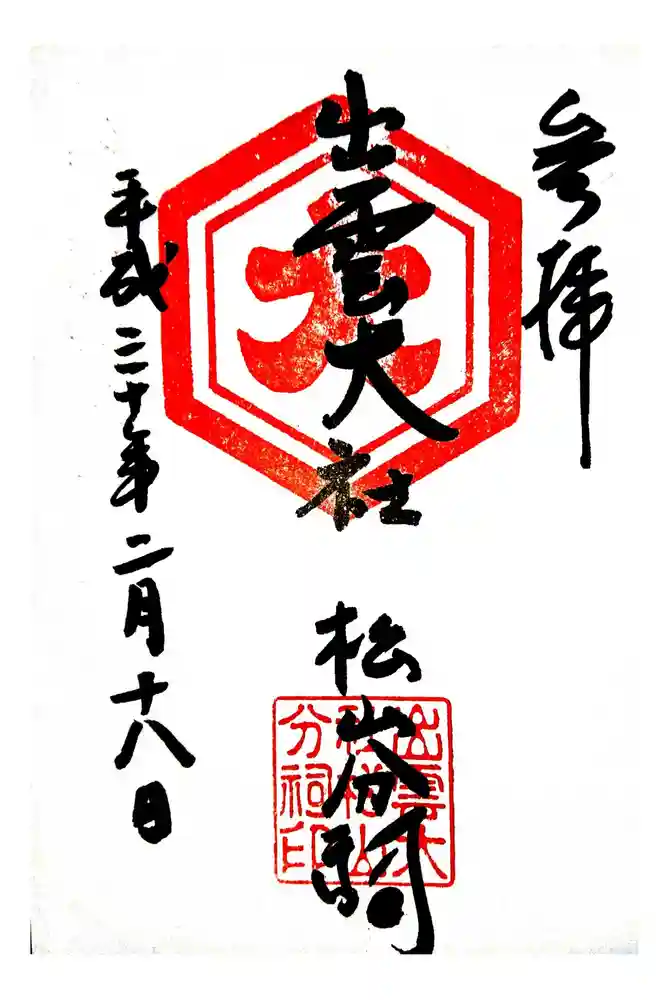 参拝
出雲大社
松山分祠
平成三十年二月十八日
大
出雲大
社松山
分祠印